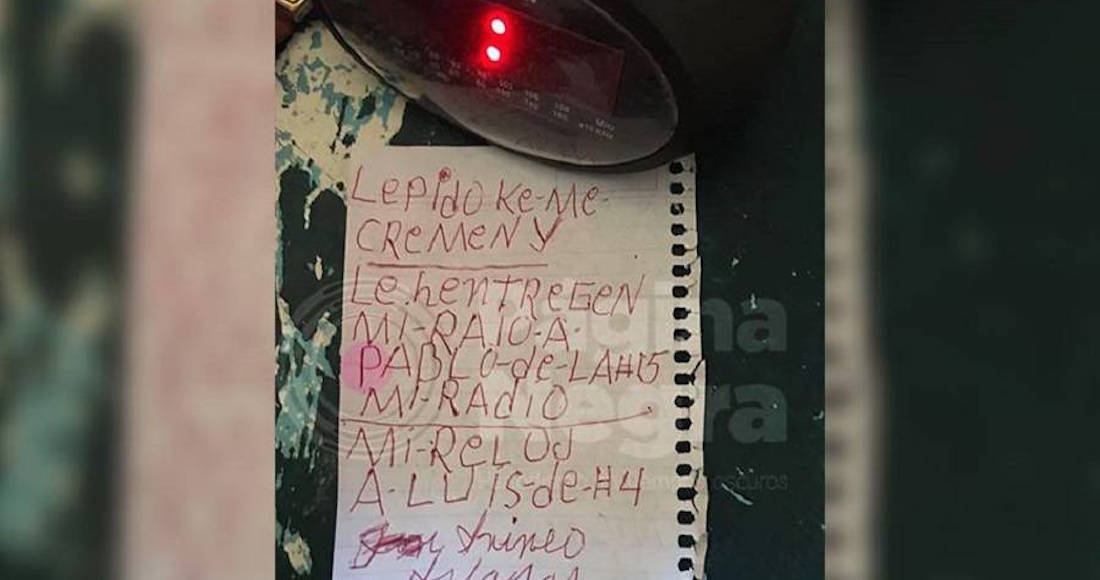 LePido Ke-Me-
CREMEN Y
Le.hentReGEN
MI-RAIO-A-
PABLO-de-LA#15
MI-RADIO
MI-ReLOJ
A-LUIS-de-#4
Página
Negra
oscuros
MHz